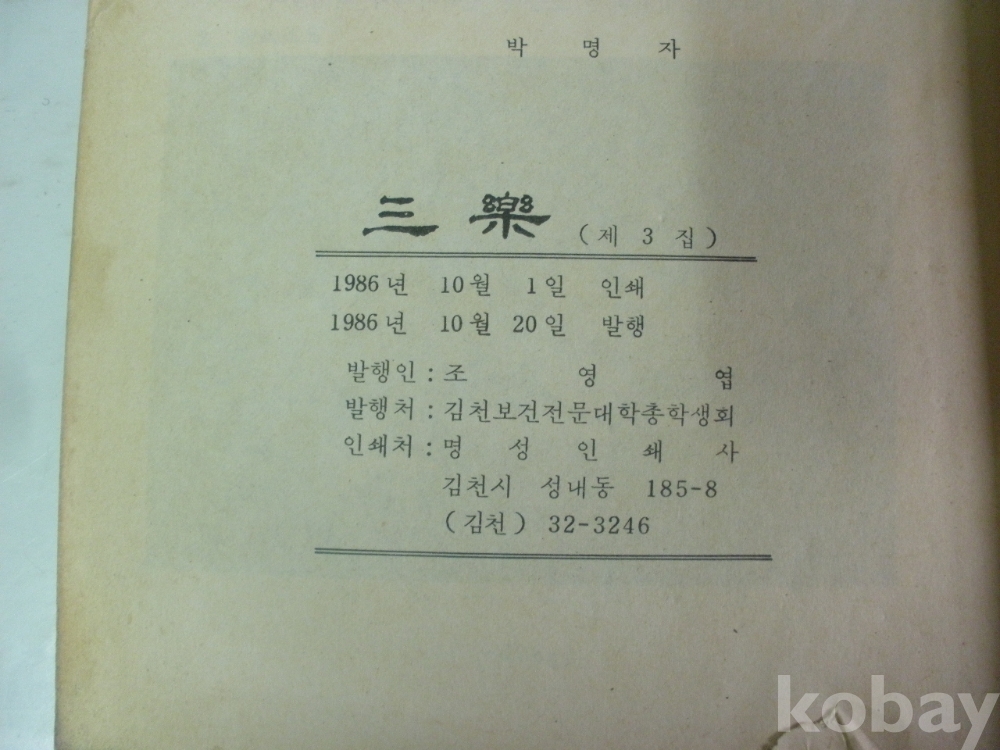 박 명 자
三 樂 (제 3 집)
1986년 10월 1일 인쇄
1986년 10월 20일 발행
발행인 : 조 영 엽
발행처 : 김천보건전문대학총학생회
인쇄처 : 명 성 인 쇄 사
김천시 성내동 185-8
(김천) 32-3246
kobay